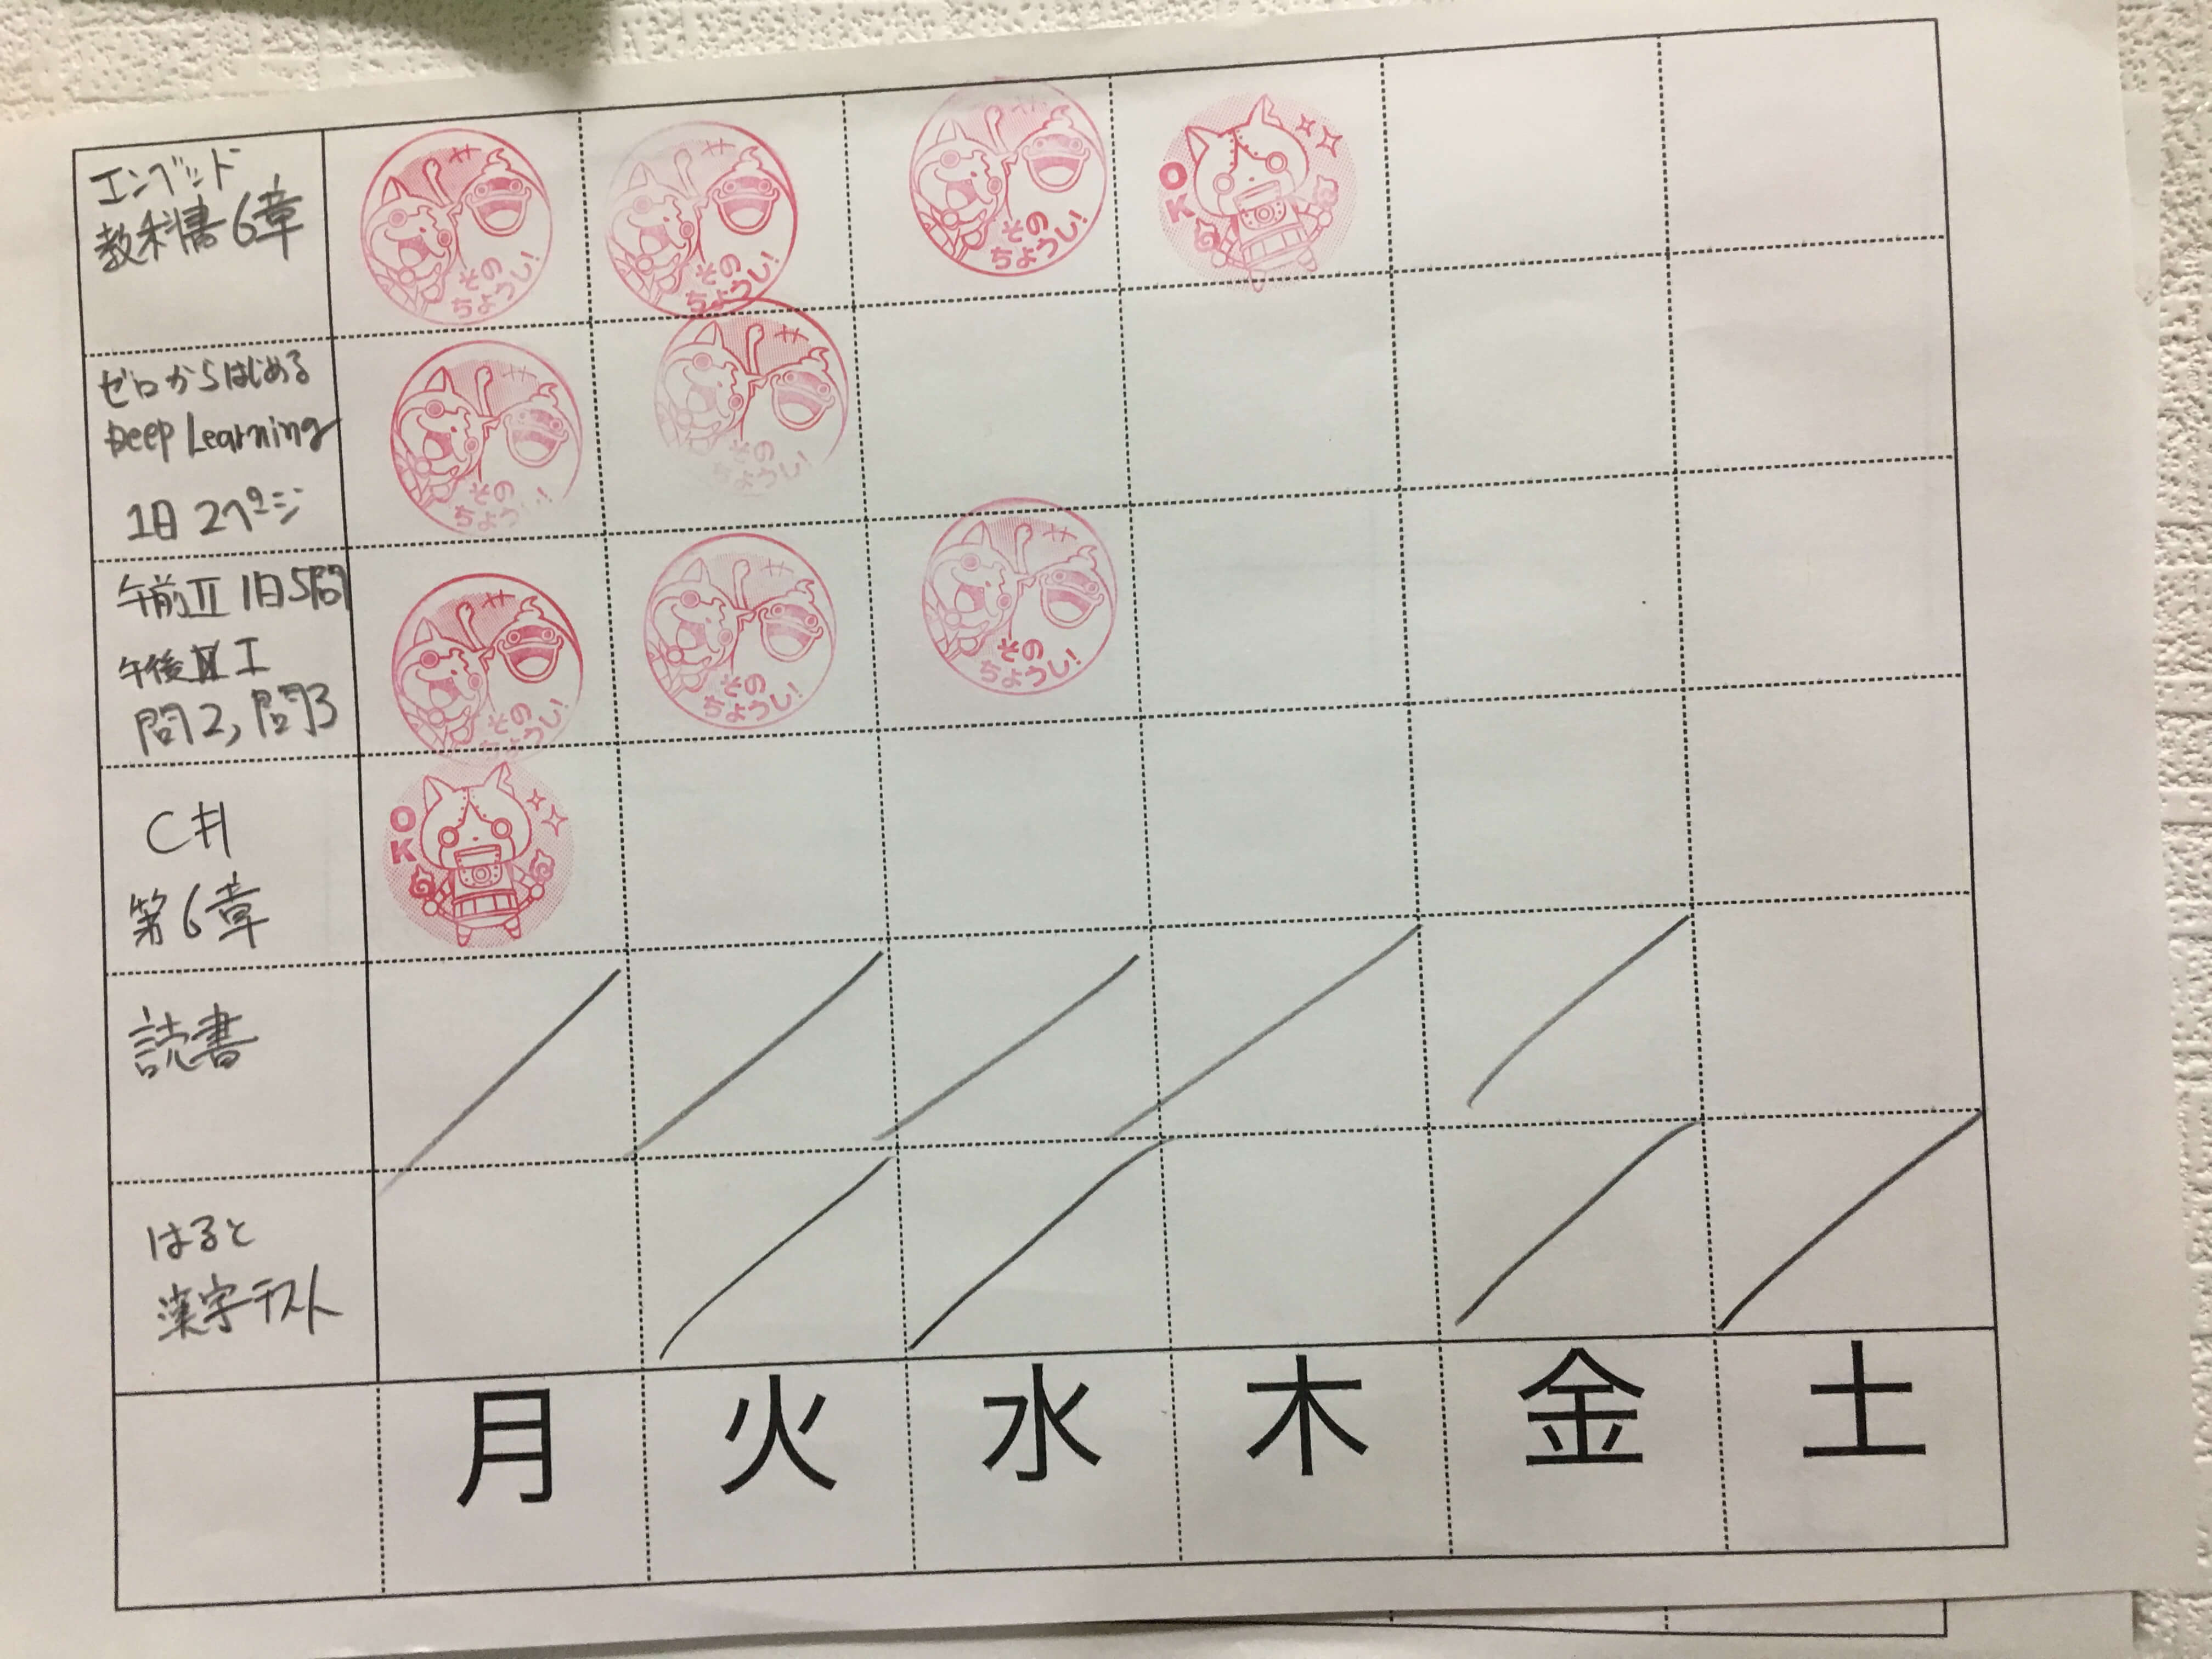 エンベッド
教科書6章
そのちょうし!
そのちょうし!
そのちょうし!
OK
ゼロからはじめる
Deep Learning
1日2ページ
そのちょうし!
そのちょうし!
午前Ⅱ 1日5問
午後 I
問2,問3
そのちょうし!
そのちょうし!
そのちょうし!
C#
第6章
OK
読書
はると
漢字テスト
月 火 水 木 金 土